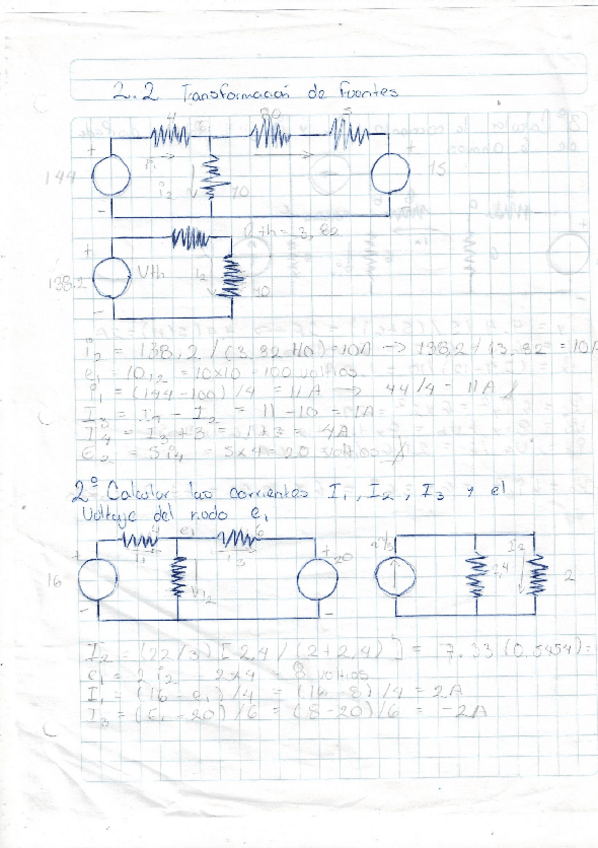 2.2 Transformación de Fuentes
4 80 5
+ +
144 i₁ i₂ 10 15
- -
Rth = 3,82
+
138.2 Vth I₂ 10
-
i₂ = 138,2 / (3,82+10) = 10A → 138,2 / 13,82 = 10A
e₁ = 10i₂ = 10x10 = 100 voltios
i₁ = (144-100)/4 = 11A → 44/4 = 11A
I₃ = i₁ - I₂ = 11-10 = 1A
I₄ = I₃ + 3 = 1+3 = 4A
e₂ = 5i₄ = 5x4 = 20 voltios
2º Calcular las corrientes I₁, I₂, I₃ y el
Voltaje del nodo e₁
4 e₁ 6 22/3 I₂
+ I₁ I₃ +
16 I₂ 20 2,4 2
- -
I₂ = (22/3) [2,4 / (2+2,4)] = 7.33 (0.5454) =
e₁ = 2i₂ = 2x4 = 8 voltios
I₁ = (16-e₁)/4 = (16-8)/4 = 2A
I₃ = (e₁-20)/6 = (8-20)/6 = -2A